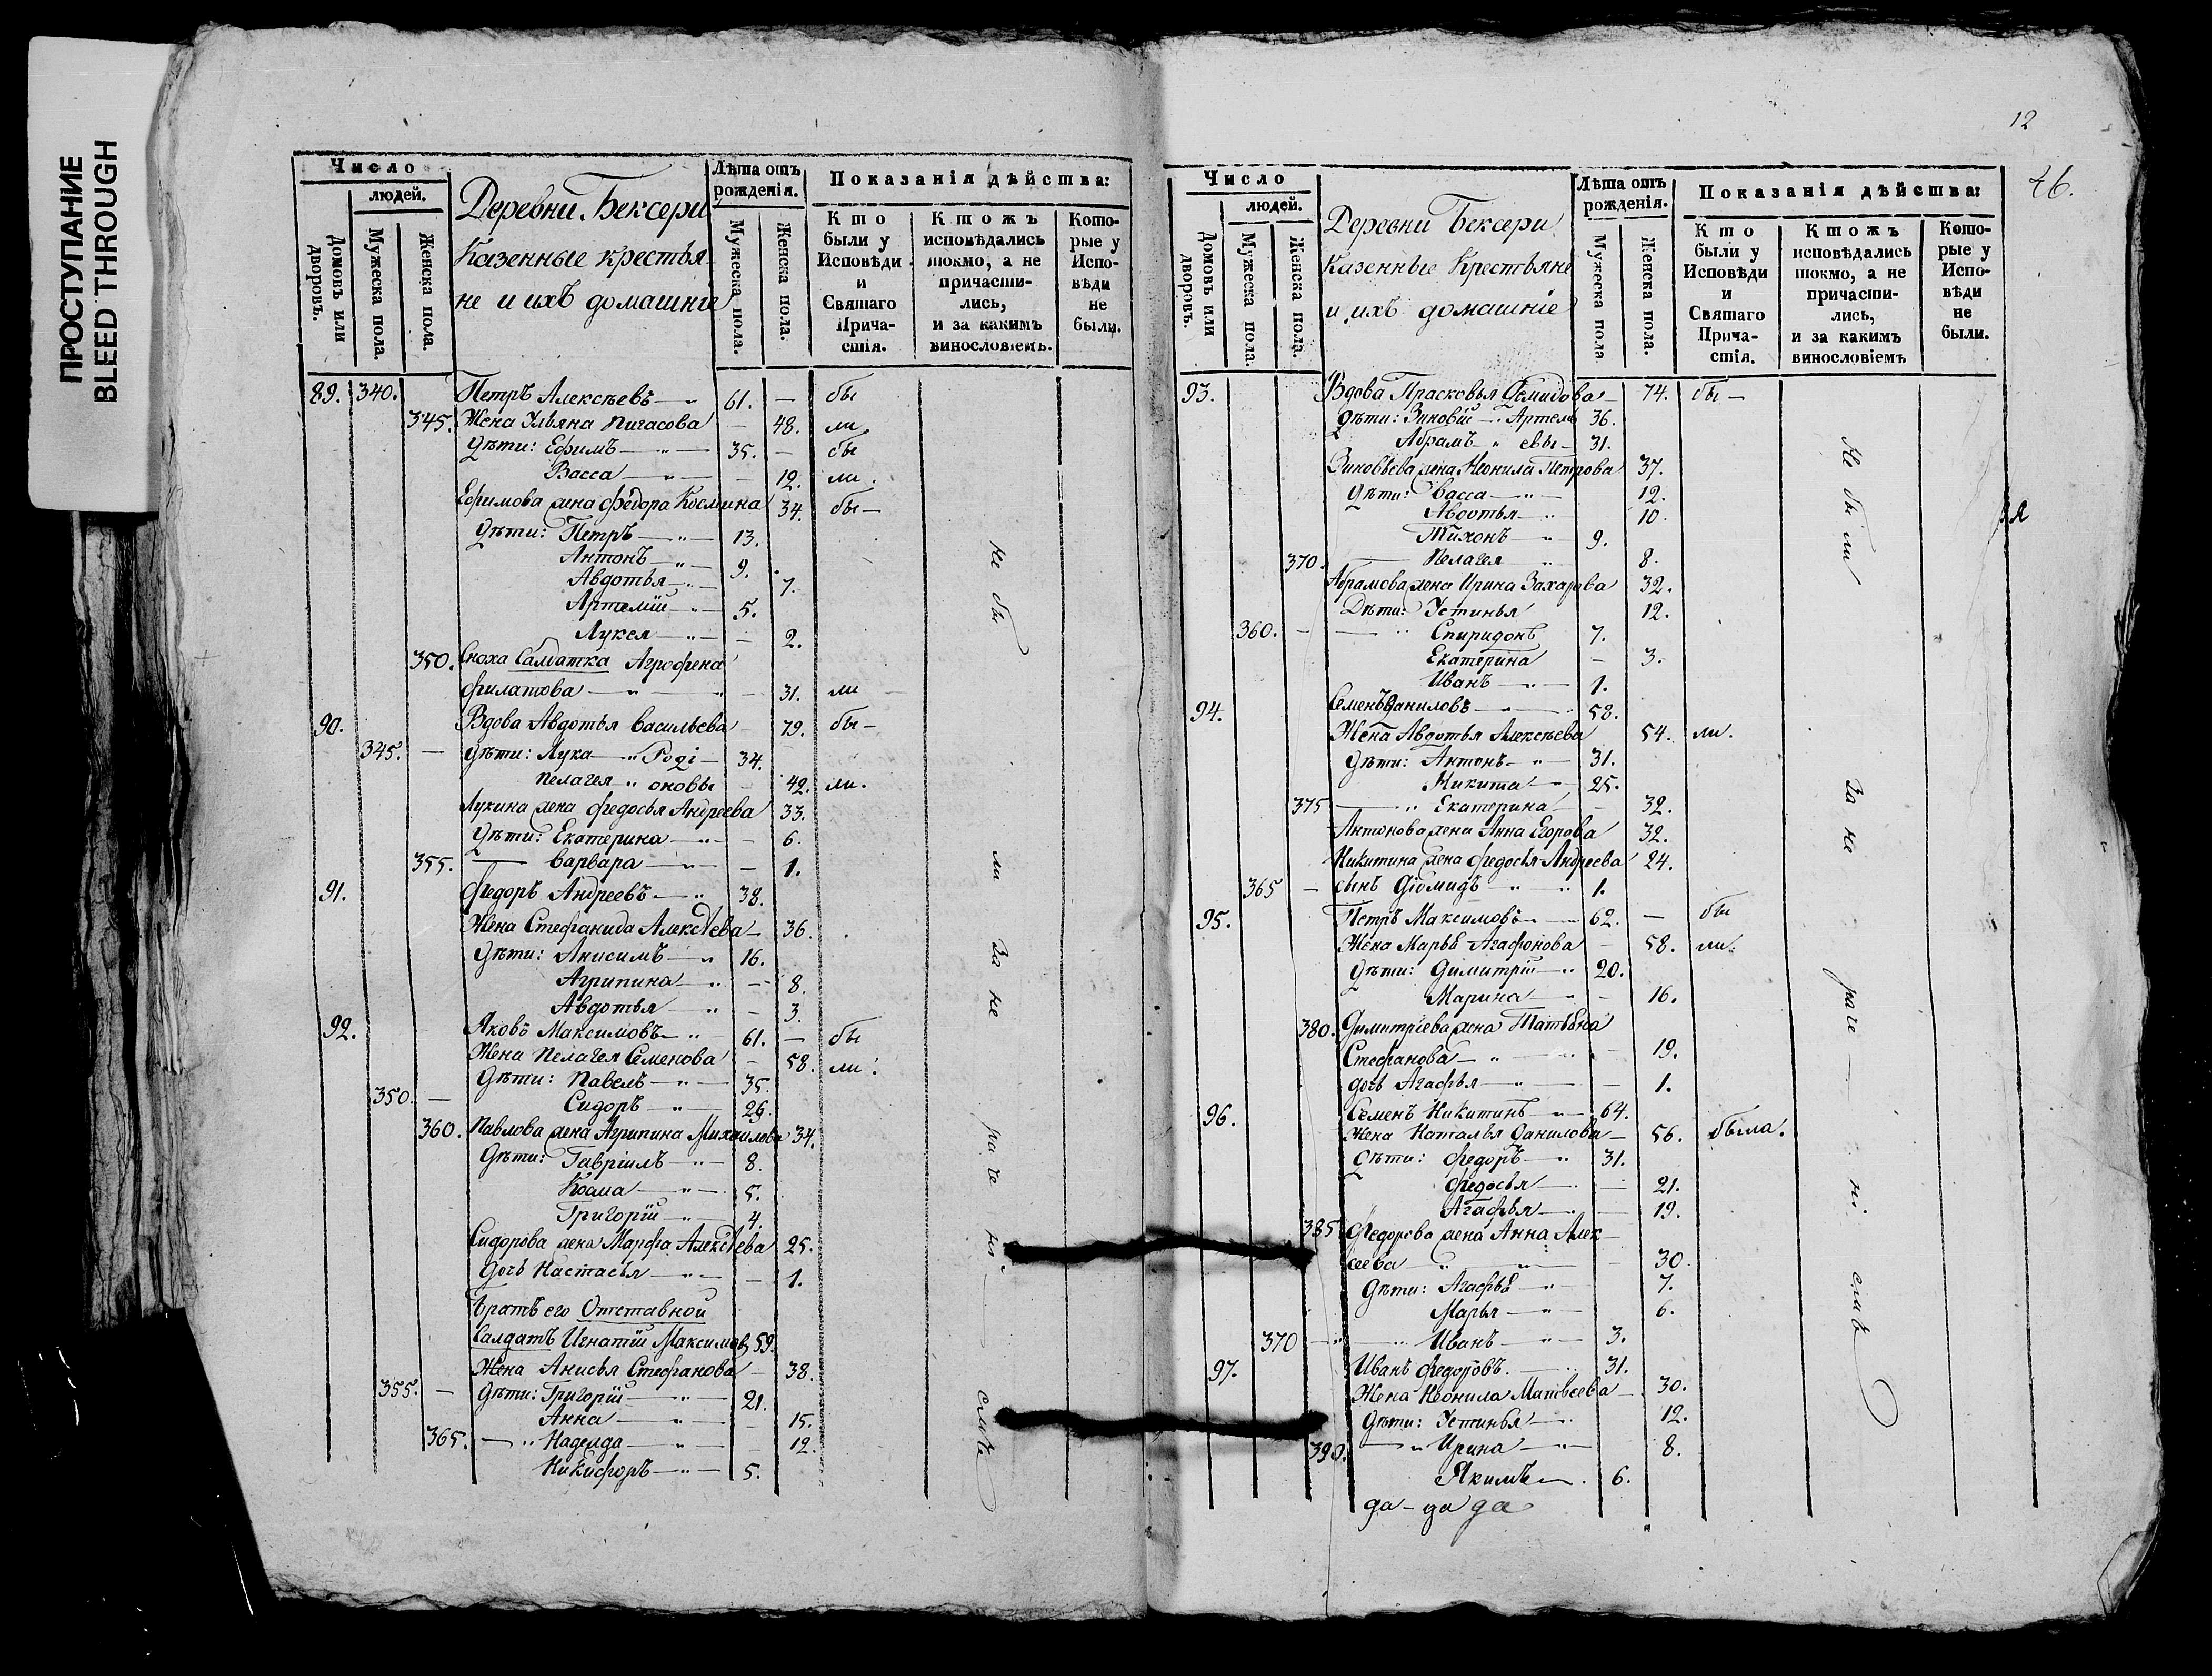 ПРОСТУПАНИЕ
BLEED THROUGH
Число
людей.
Домовъ или дворовъ.
Мужеска пола.
Женска пола.
Деревни Бексери
Казенные крестья-
не и ихъ домашние
Лѣта отъ рожденія.
Мужеска пола.
Женска пола.
Показанія дѣйства:
Кто были у Исповѣди и Святаго Причастія.
Ктожъ исповѣдались токмо, а не причастились, и за какимъ винословіемъ.
Которые у Исповѣди не были.
89. 340. Петръ Алексѣевъ — 61. — бы
345. Жена Ульяна Пигасова — 48. ли
Дѣти: Ефимъ — 35. — бы
Васса — — 12. ли.
Ефимова жена Федора Космина 34. бы —
Дѣти: Петръ — 13.
Антонъ — 9.
Авдотья — 7.
Артемій — 5.
Лукея — — 2.
350. Сноха Салдатка Агрофена
Филатова — — 31. ли
90. Вдова Авдотья Васильева 79. бы —
345. — Дѣти: Лука — Роди — 34.
Пелагея " оновы — 42. ли.
Лукина жена Федосья Андреева 33.
Дѣти: Екатерина — — 6.
355. — Варвара — — 1.
91. Федоръ Андреевъ — 38.
Жена Стефанида Алексѣева — 36.
Дѣти: Анисимъ — 16.
Агрипина — — 8.
Авдотья — 3.
92. Яковъ Максимовъ — 61. — бы
Жена Пелагея Семенова — 58. ли.
Дѣти: Павелъ — 35.
350. — Сидоръ — 26.
360. Павлова жена Агрипина Михаилова 34.
Дѣти: Гавріилъ — 8.
Косма — 5.
Григорій — 4.
Сидорова жена Марфа Алексѣева 25.
Дочь Настасья — — 1.
Братъ его Отставной
Салдатъ Игнатій Максимов, 59.
Жена Анисья Стефанова — 38.
355. — Дѣти: Григорій — 21.
Анна — — 15.
365. — " Надежда — — 12.
Никифоръ — 5.
не бы ли За не раче ні — смъ
12
Число
людей.
Домовъ или дворовъ.
Мужеска пола.
Женска пола.
Деревни Бексери
Казенные Крестьяне
и ихъ домашніе
Лѣта отъ рожденія.
Мужеска пола
Женска пола.
Показанія дѣйства:
Кто были у Исповѣди и Святаго Причастія.
Ктожъ исповѣдались токмо, а не причастились, и за какимъ винословіемъ
Которые у Исповѣди не были.
93. Вдова Прасковья Демидова — 74. бы —
Дѣти: Зиновій — Артемь 36.
Абрамъ " евы — 31.
Зиновьева жена Неонила Петрова 37.
Дѣти: Васса — 12.
Авдотья — 10.
Тихонъ — 9.
370. — Пелагея 8.
Абрамова жена Ирина Захарова 32.
Дѣти: Устинья 12.
360. — — " Спиридонъ 7.
Екатерина — 3.
Иванъ — 1.
94. Семенъ Даниловъ — 58.
Жена Авдотья Алексѣева 54. ли.
Дѣти: Антонъ — 31.
Никита — 25.
375 — " Екатерина — 32.
Антонова жена Анна Егорова 32.
Никитина жена Федосья Андреева 24.
365 — сынъ Діомидъ — 1.
95. Петръ Максимовъ — 62. — бы
Жена Марья Агафонова — 58. ли.
Дѣти: Димитрій — 20.
Марина — — 16.
380. Димитріева жена Татьяна
Стефанова — — 19.
дочь Агафья — — 1.
96. Семенъ Никитинъ — 64.
Жена Наталья Данилова — 56. была.
Дѣти: Федоръ — 31.
Федосья — — 21.
Агафья — — 19.
385 Федорова жена Анна Алек-
сеева — — 30.
Дѣти: Агафья — 7.
Марья — 6.
370 — " — Иванъ — 3.
97. Иванъ Федоровъ. — 31.
Жена Неонила Матвеева — 30.
Дѣти: Устинья — 12.
390. — " Ирина — 8.
Якимъ — 6.
да — да да
Не бы ли За не раче — ні смъ